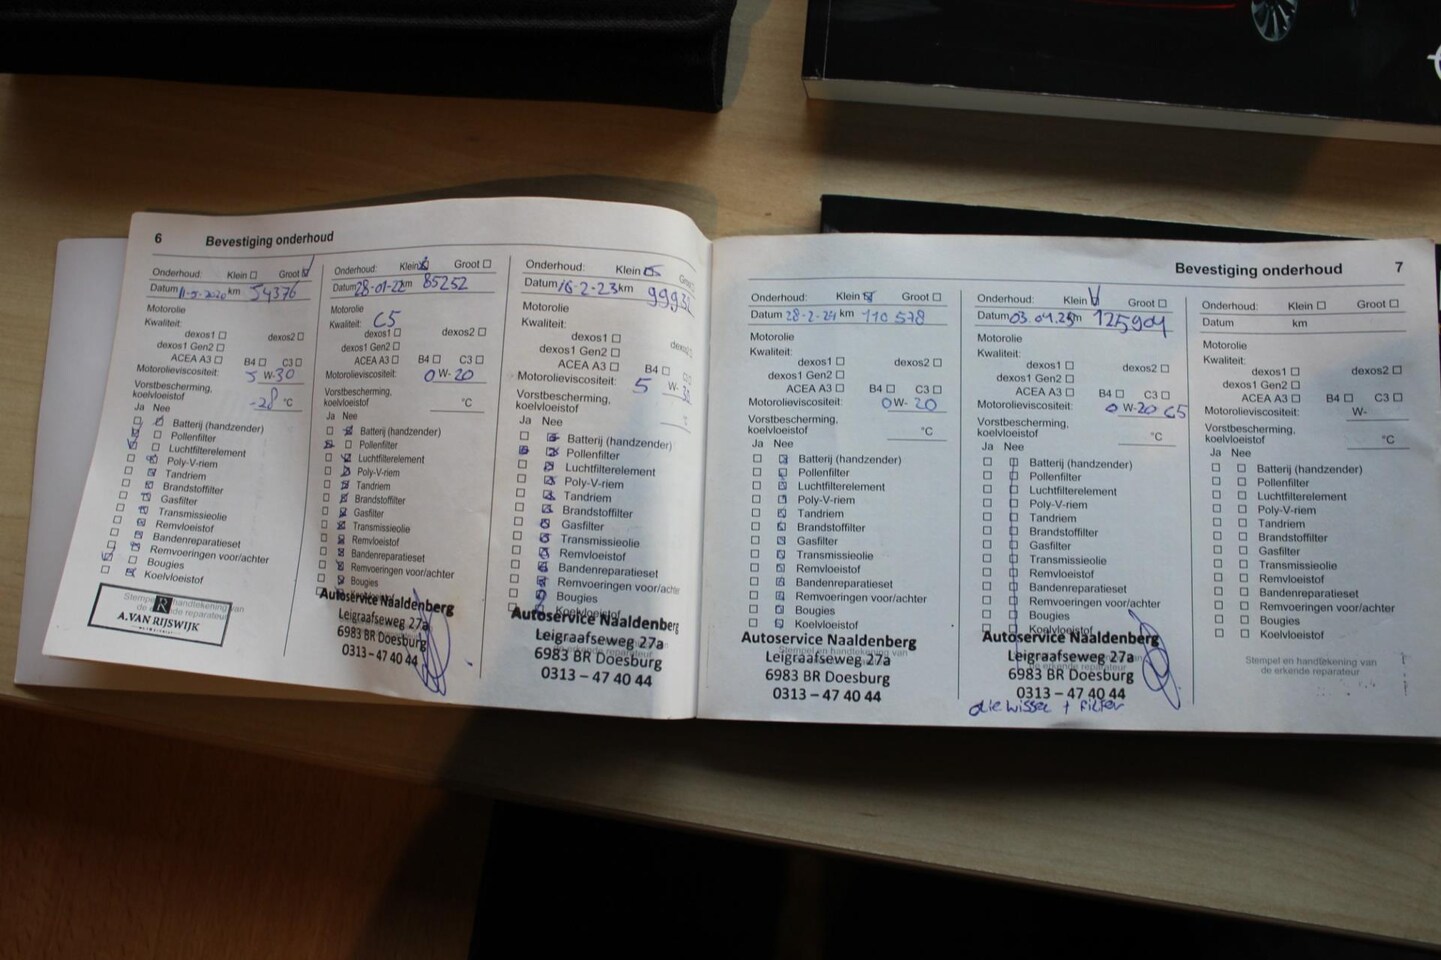 6 Bevestiging onderhoud
Onderhoud: Klein Groot
Datum 11-5-2020 km 54376
Motorolie
Kwaliteit:
dexos1 dexos2
dexos1 Gen2
ACEA A3 B4 C3
Motorolieviscositeit: 5 W-30
Vorstbescherming,
koelvloeistof -28 °C
Ja Nee
Batterij (handzender)
Pollenfilter
Luchtfilterelement
Poly-V-riem
Tandriem
Brandstoffilter
Gasfilter
Transmissieolie
Remvloeistof
Bandenreparatieset
Remvoeringen voor/achter
Bougies
Koelvloeistof
Stempel en handtekening van
de erkende reparateur
R
A.VAN RIJSWIJK
Onderhoud: Klein Groot
Datum 28-01-22 km 85252
Motorolie
Kwaliteit: C5
dexos1 dexos2
dexos1 Gen2
ACEA A3 B4 C3
Motorolieviscositeit: 0 W-20
Vorstbescherming,
koelvloeistof °C
Ja Nee
Batterij (handzender)
Pollenfilter
Luchtfilterelement
Poly-V-riem
Tandriem
Brandstoffilter
Gasfilter
Transmissieolie
Remvloeistof
Bandenreparatieset
Remvoeringen voor/achter
Bougies
Autoservice Naaldenberg
Leigraafseweg 27a
6983 BR Doesburg
0313 – 47 40 44
Onderhoud: Klein
Datum 16-2-23 km
Motorolie
Kwaliteit:
dexos1
dexos1 Gen2
ACEA A3 B4 C3
Motorolieviscositeit: 5 W-30
Vorstbescherming,
koelvloeistof
Ja Nee
Batterij (handzender)
Pollenfilter
Luchtfilterelement
Poly-V-riem
Tandriem
Brandstoffilter
Gasfilter
Transmissieolie
Remvloeistof
Bandenreparatieset
Remvoeringen voor/achter
Bougies
Koelvloeistof
Autoservice Naaldenberg
Leigraafseweg 27a
6983 BR Doesburg
0313 – 47 40 44
Bevestiging onderhoud 7
Onderhoud: Klein Groot
Datum 28-2-24 km 110 578
Motorolie
Kwaliteit:
dexos1 dexos2
dexos1 Gen2
ACEA A3 B4 C3
Motorolieviscositeit: 0 W-20
Vorstbescherming,
koelvloeistof °C
Ja Nee
Batterij (handzender)
Pollenfilter
Luchtfilterelement
Poly-V-riem
Tandriem
Brandstoffilter
Gasfilter
Transmissieolie
Remvloeistof
Bandenreparatieset
Remvoeringen voor/achter
Bougies
Koelvloeistof
Autoservice Naaldenberg
Leigraafseweg 27a
6983 BR Doesburg
0313 – 47 40 44
Onderhoud: Klein Groot
Datum km 125904
Motorolie
Kwaliteit:
dexos1 dexos2
dexos1 Gen2
ACEA A3 B4 C3
Motorolieviscositeit: 0 W-20 C5
Vorstbescherming,
koelvloeistof °C
Ja Nee
Batterij (handzender)
Pollenfilter
Luchtfilterelement
Poly-V-riem
Tandriem
Brandstoffilter
Gasfilter
Transmissieolie
Remvloeistof
Bandenreparatieset
Remvoeringen voor/achter
Bougies
Koelvloeistof
Autoservice Naaldenberg
Leigraafseweg 27a
6983 BR Doesburg
0313 – 47 40 44
olie wissel + filter
Onderhoud: Klein Groot
Datum km
Motorolie
Kwaliteit:
dexos1 dexos2
dexos1 Gen2
ACEA A3 B4 C3
Motorolieviscositeit: W-
Vorstbescherming,
koelvloeistof °C
Ja Nee
Batterij (handzender)
Pollenfilter
Luchtfilterelement
Poly-V-riem
Tandriem
Brandstoffilter
Gasfilter
Transmissieolie
Remvloeistof
Bandenreparatieset
Remvoeringen voor/achter
Bougies
Koelvloeistof
Stempel en handtekening van
de erkende reparateur